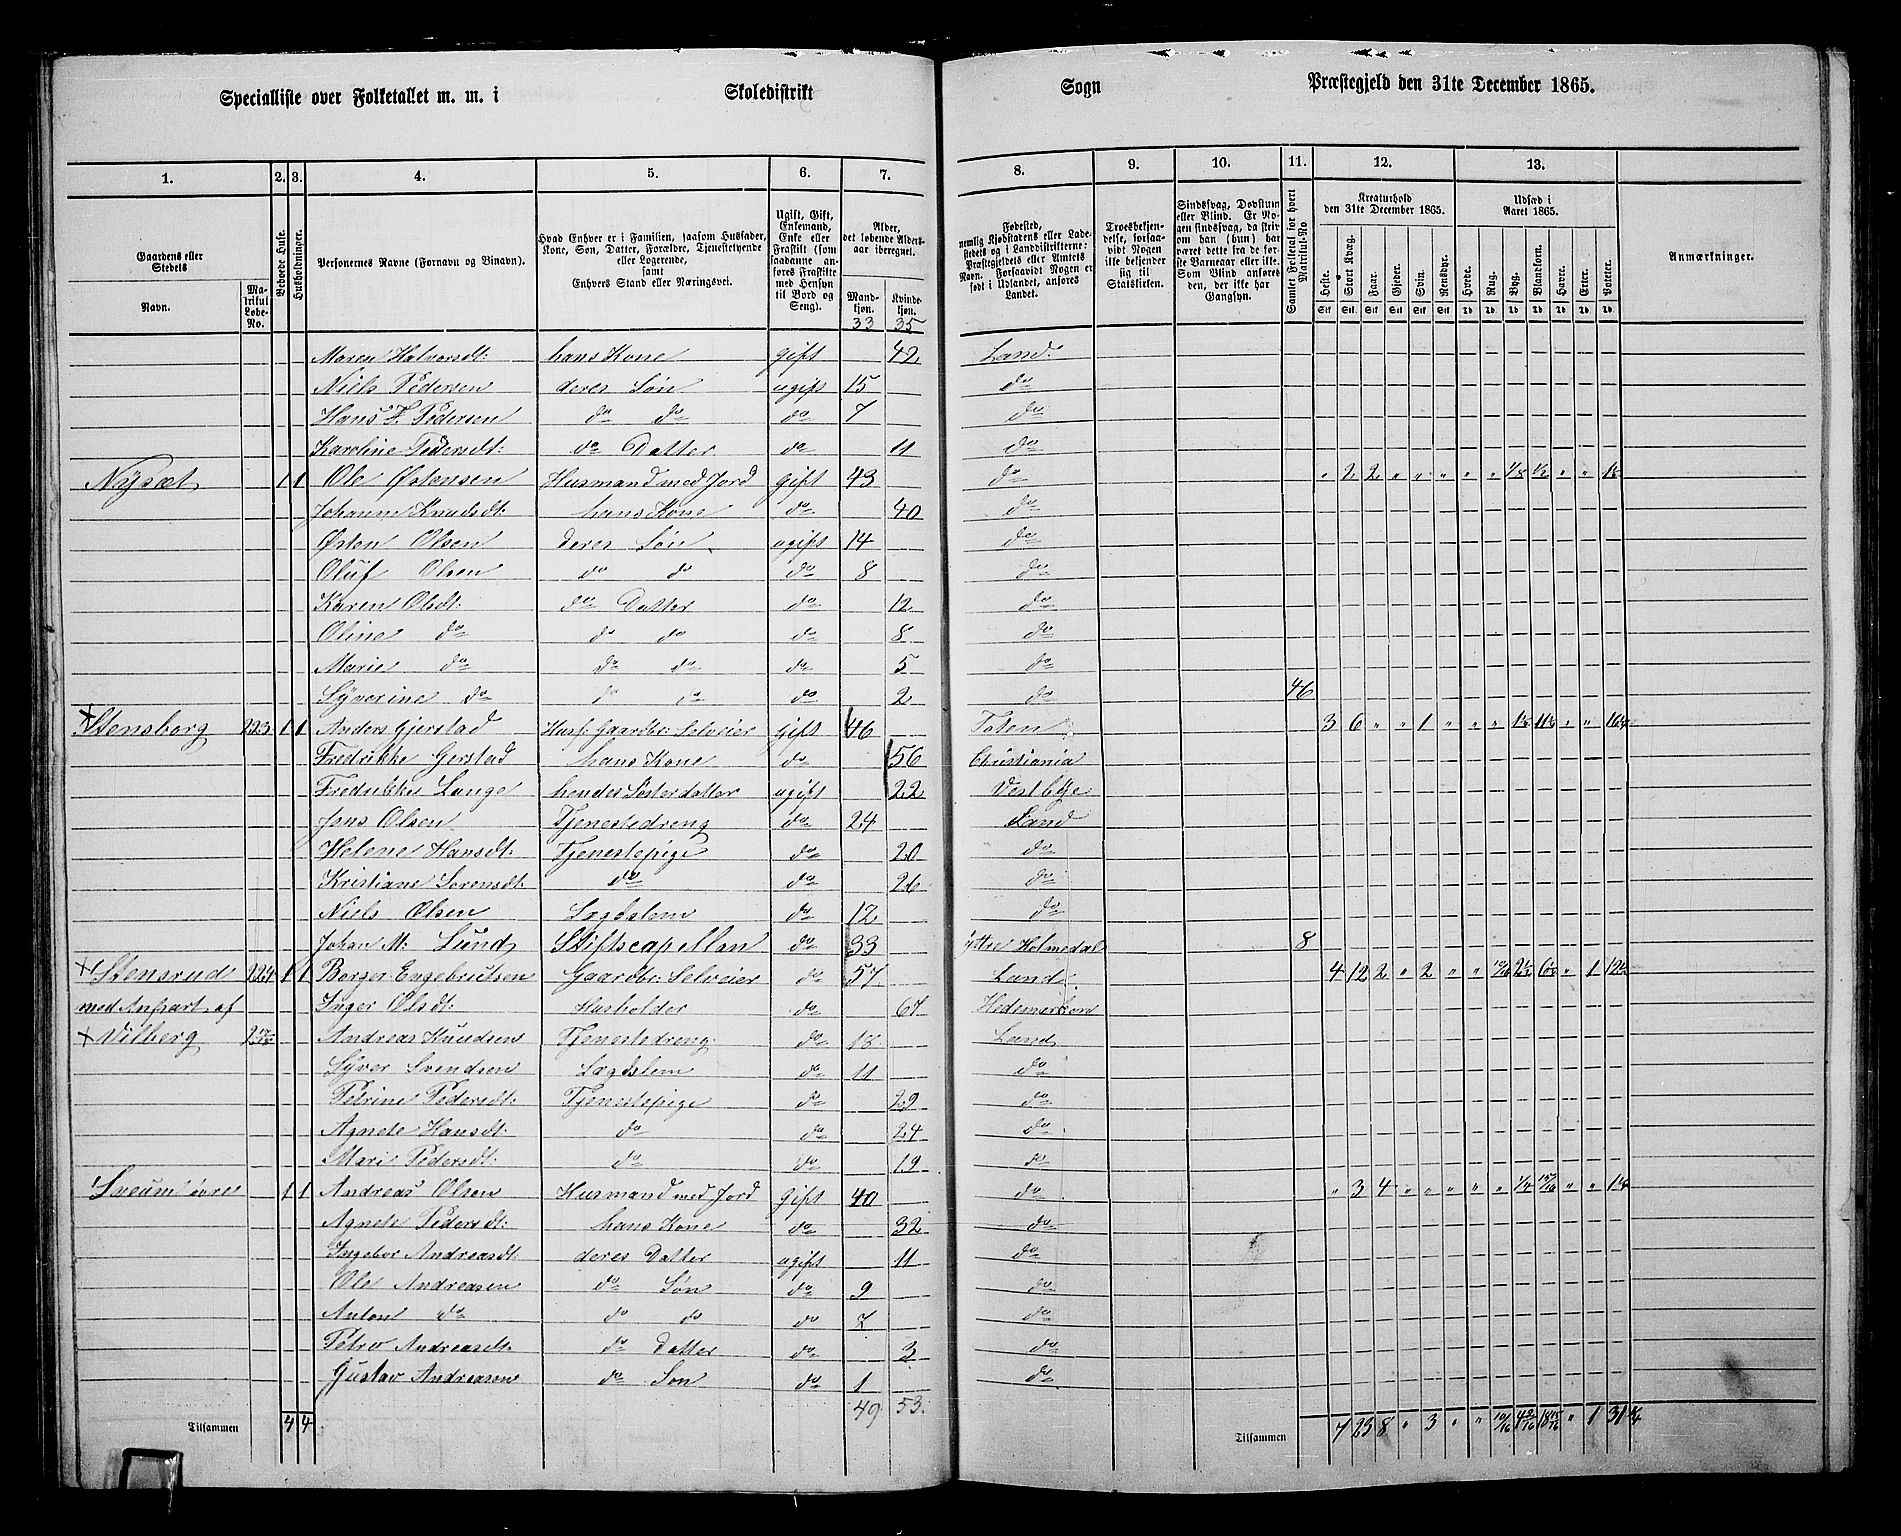 Specialliste over Folketallet m. m. i Skoledistrikt Sogn Præstegjeld den 31te December 1865.
1. 2. 3. 4. 5. 6. 7. 8. 9. 10. 11. 12. 13.
Gaardens eller Stedets Navn. Matrikul Løbe-No. Beboede Huse. Husholdninger. Personernes Navne (Fornavn og Binavn). Hvad Enhver er i Familien, saasom Husfader, Kone, Søn, Datter, Forældre, Tjenestetyende eller Logerende, samt Enhvers Stand eller Næringsvei. Ugift, Gift, Enkemand, Enke eller Fraskilt (som saadanne anføres Fraskilte med Hensyn til Bord og Seng). Alder, det løbende Aldersaar iberegnet. Mandkjøn. 33 Kvindekjøn. 35 Fødested, nemlig Kjøbstadens eller Ladestedets og i Landdistrikterne: Præstegjeldets eller Amtets Navn. Forsaavidt Nogen er født i Udlandet, anføres Landet. Troesbekjendelse, forsaavidt Nogen ikke bekjender sig til Statskirken. Sindssvag, Døvstum eller Blind. Er Nogen sindssvag, da skrives om han (hun) har været dette fra de første Barneaar eller ikke. Som Blind anføres den, der ikke har Gangsyn. Samlet Folketal for hvert Matrikul-No Kreaturhold den 31te December 1865. Heste. Stort Kvæg. Faar. Gjeder. Svin. Rensdyr. Udsæd i Aaret 1865. Hvede. Rug. Byg. Blandkorn. Havre. Erter. Poteter. Anmærkninger.
Maren Halvorsdt: hans Kone gift 42 Land.
Niels Pedersen deres Søn ugift 15 do
Hans F. Pedersen do do do 7 do
Karoline Pedersdt: do Datter do 11 do
Nysæt 1 1 Ole Østensen Husmand med Jord gift 43 do " 2 2 " " " " " 1/8 1/2 " "
Johanne Knudsdt: hans Kone do 40 do
Østen Olsen deres Søn ugift 14 do
Oluf Olsen do do do 8 do
Karen Olsdt: do Datter do 12 do
Oline do do do do 8 do
Marie do do do do 5 do
Syverine do do do do 2 do 46
Stensborg 223 1 1 Anders Gjerstad Husf: Gaardbr: Selveier gift 46 Toten 3 6 " " 1 " " "
Fredrikke Gerstad hans Kone do 56 Christiania
Fredrikke Lange hendes Søsterdatter ugift 22 Vestbye
Jens Olsen Tjenestedreng do 24 Land
Helene Hansdt: Tjenestepige do 20 do
Kristiane Sørensdt: do do 26 do
Niels Olsen Lægdslem do 12 do
Johan M. Lund Stiftscapellan do 33 Yttre Holmedal 8
Stensrud 224 1 1 Borger Engebrutsen Gaardbr: Selveier do 57 Land 4 12 2 " 2 " " 10/16 2 1/2 6 1/2 " 1 12 1/2
med Anpart af Inger Olsdt: Husholder do 67 Hedemarken
Vilberg Andreas Knudsen Tjenestedreng do 18 Land
Syver Svendsen Lægdslem do 11 do
Petrine Pedersdt: Tjenestepige do 29 do
Agnete Hansdt: do do 24 do
Mari Pedersdt: do do 19 do
Sveum øvre 1 1 Andreas Olsen Husmand med Jord gift 40 do " 3 4 " " " " " 1/4 10/16 " "
Agnete Pedersdt: hans Kone do 32 do
Ingebor Andreasdt: deres Datter ugift 11 do
Ole Andreasen do Søn do 9 do
Anton do do do do 7 do
Petra Andreasdt: do Datter do 3 do
Gustav Andreasen do Søn do 1 do
49 53
Tilsammen 4 4 Tilsammen 7 23 8 " 3 " " 10/16 " 1